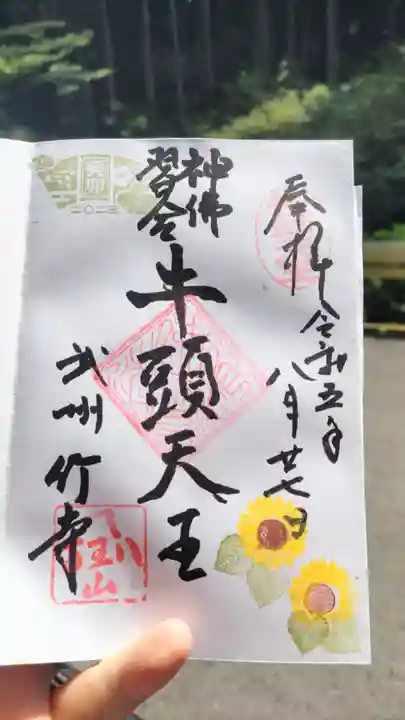 奉拝
令和五年
八月廿七日
神佛
習合
牛頭天王
武州竹寺
八王山